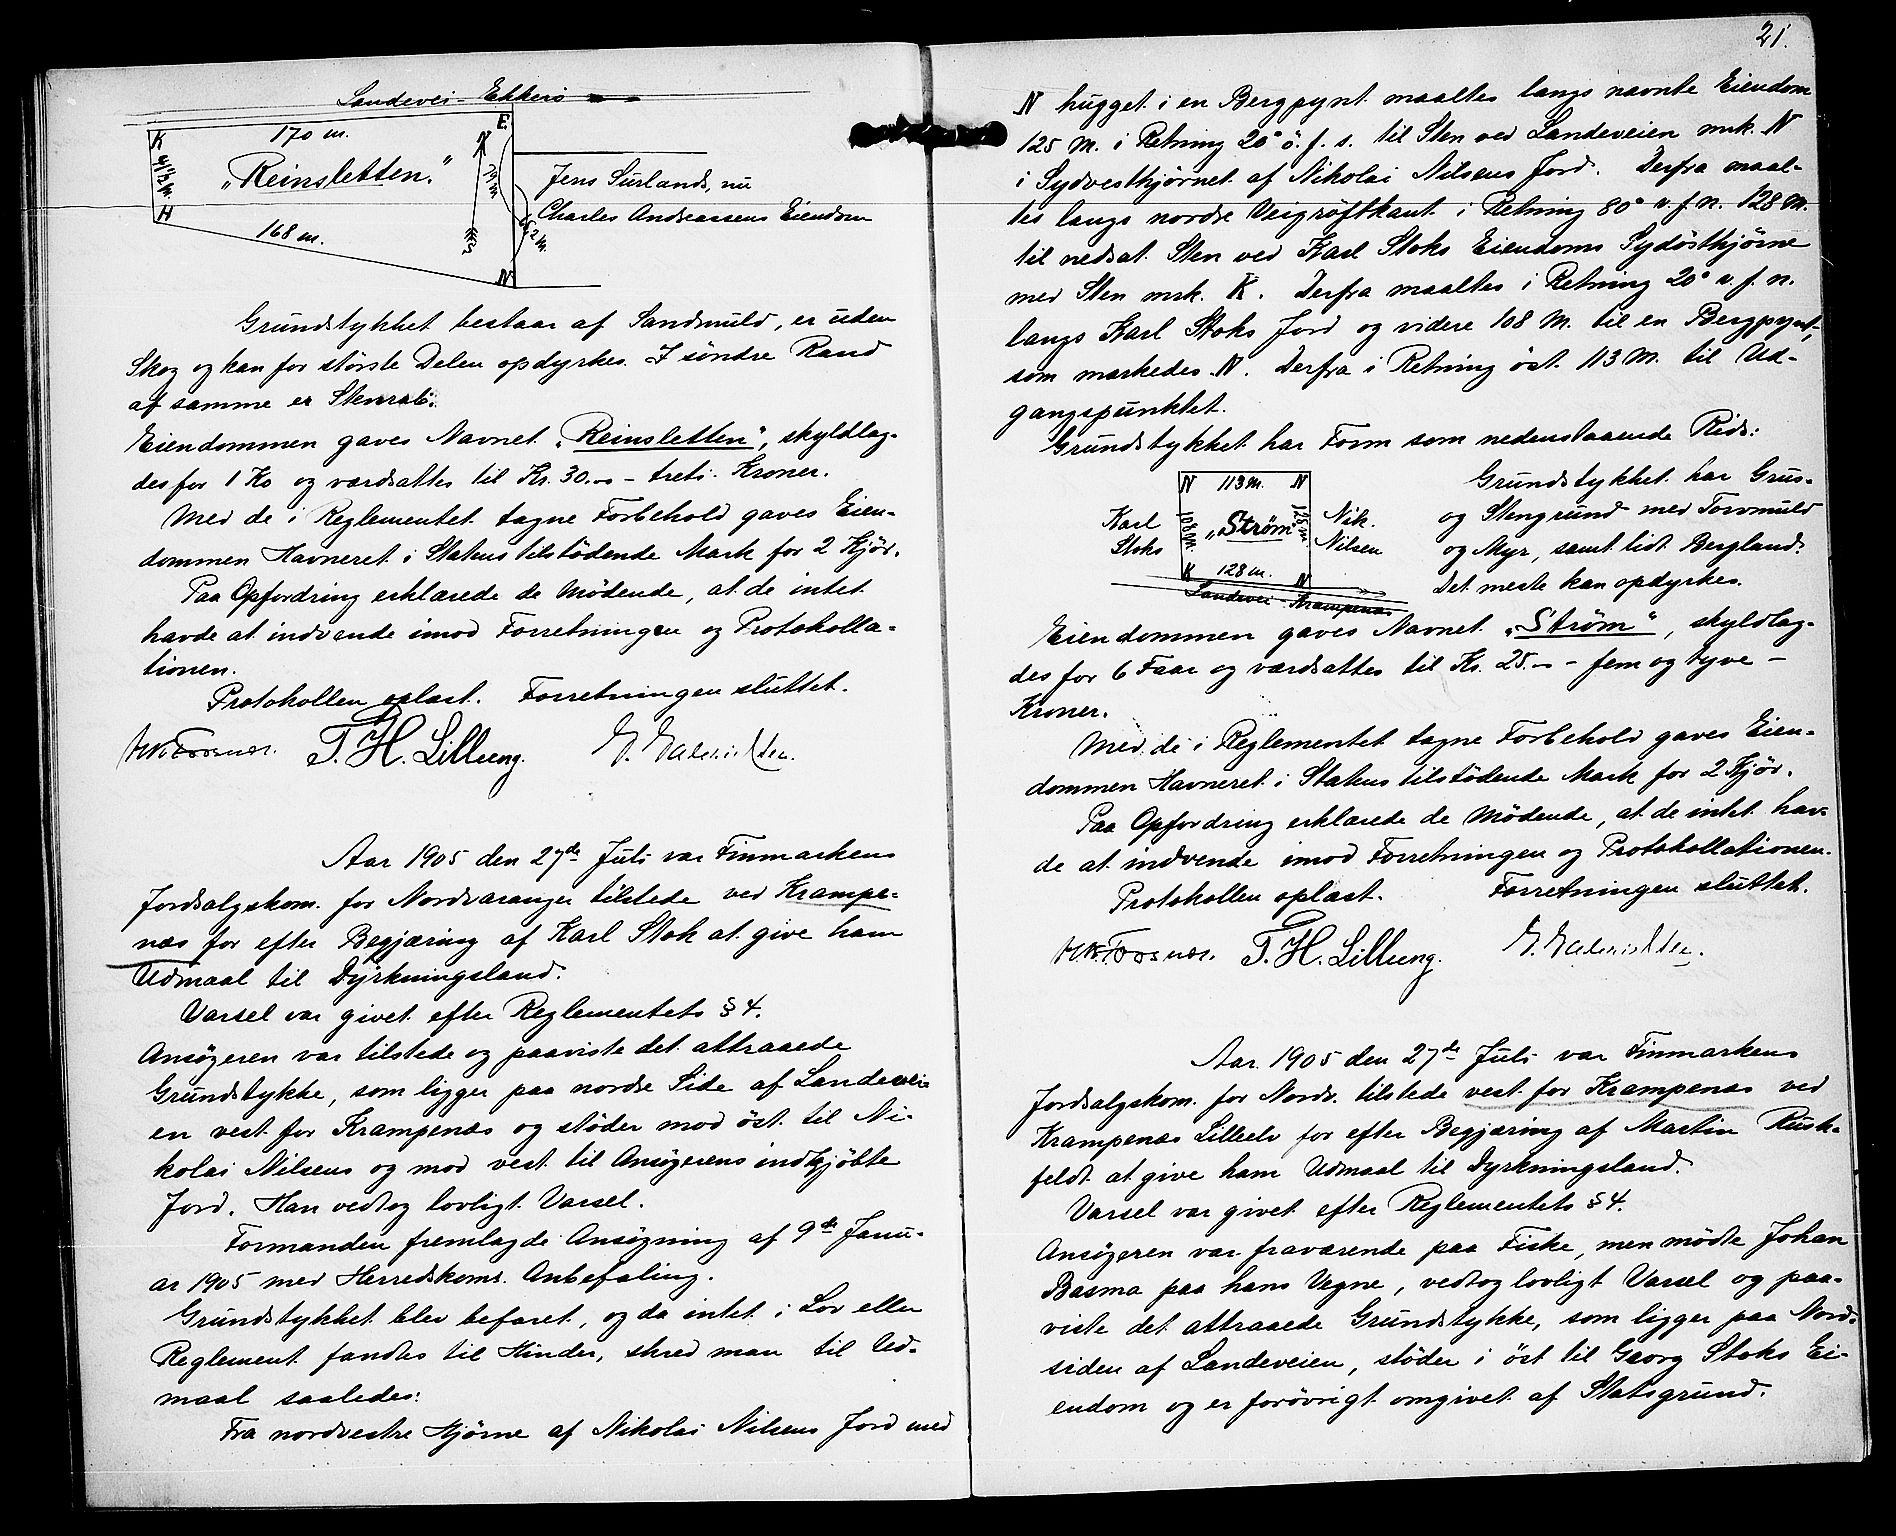 Landevei - Ekkerö
K 170 m. E.
41½ m. „Reinsletten." N
Jens Surlands, nu
H Charles Andreassens Eiendom
168 m.
N
Grundstykket bestaar af Sandmuld, er uden
Skog og kan for største Delen opdyrkes. I söndre Rand
af samme er Stenrab.
Eiendommen gaves Navnet „Reinsletten", skyldlag-
des for 1 Ko og værdsattes til Kr. 30.— - treti - Kroner.
Med de i Reglementet tagne Forbehold gaves Eien-
dommen Havneret i Statens tilstödende Mark for 2 Kjör.
Paa Opfordring erklærede de Mödende, at de intet
havde at indvende imod Forretningen og Protokolla-
tionen.
Protokollen oplæst. Forretningen sluttet.
T. H. Lilleeng.
Aar 1905 den 27de Juli var Finmarkens
Jordsalgskom. for Nordvaranger tilstede ved Krampe-
næs for efter Begjæring af Karl Stok at give ham
Udmaal til Dyrkningsland.
Varsel var givet efter Reglementets § 4.
Ansögeren var tilstede og paaviste det attraaede
Grundstykke, som ligger paa nordre Side af Landevei-
en vest for Krampenæs og stöder mod öst til Ni-
kolai Nilsens og mod vest til Ansögerens indkjöbte
Jord. Han vedtog lovligt Varsel.
Formanden fremlagde Ansögning af 9de Janu-
ar 1905 med Herredskoms. Anbefaling.
Grundstykket blev befaret, og da intet i Lov eller
Reglement fandtes til Hinder, skred man til Ud-
maal saaledes:
Fra nordvestre Hjörne af Nikolai Nilsens Jord med
21.
N hugget i en Bergpynt maaltes langs nævnte Eiendom
125 M. i Retning 20° ö. f. s. til Sten ved Landeveien mrk. N
i Sydvesthjörnet af Nikolai Nilsens Jord. Derfra maal-
tes langs nordre Veigröftkant i Retning 80° v. f. n. 128 M.
til nedsat Sten ved Karl Stoks Eiendoms Sydösthjörne
med Sten mrk. K. Derfra maaltes i Retning 20° v. f. n.
langs Karl Stoks Jord og videre 108 M. til en Bergpynt,
som markedes N. Derfra i Retning öst 113 M. til Ud-
gangspunktet.
Grundstykket har Form som nedenstaaende Rids:
N 113 M. N
Karl Stoks 108 M. „Ström" 125 M. Nik. Nilsen
K 128 m. N
Landevei - Krampenæs
Grundstykket har Grus-
og Stengrund med Torvmuld
og Myr, samt lidt Bergland.
Det meste kan opdyrkes.
Eiendommen gaves Navnet „Ström", skyldlag-
des for 6 Faar og værdsattes til Kr. 25.— - fem og tyve -
Kroner.
Med de i Reglementet tagne Forbehold gaves Eien-
dommen Havneret i Statens tilstödende Mark for 2 Kjör.
Paa Opfordring erklærede de Mödende, at de intet hav-
de at indvende imod Forretningen og Protokollationen.
Protokollen oplæst. Forretningen sluttet.
T. H. Lilleeng.
Aar 1905 den 27de Juli var Finmarkens
Jordsalgskom. for Nordv. tilstede vest for Krampenæs ved
Krampenæs Lilleelv for efter Begjæring af Martin Rusk-
feldt at give ham Udmaal til Dyrkningsland.
Varsel var givet efter Reglementets § 4.
Ansögeren var fraværende paa Fiske, men mödte Johan
Basma paa hans Vegne, vedtog lovligt Varsel og paa-
viste det attraaede Grundstykke, som ligger paa Nord-
siden af Landeveien, stöder i öst til Georg Stoks Ei-
endom og er forövrigt omgivet af Statsgrund.